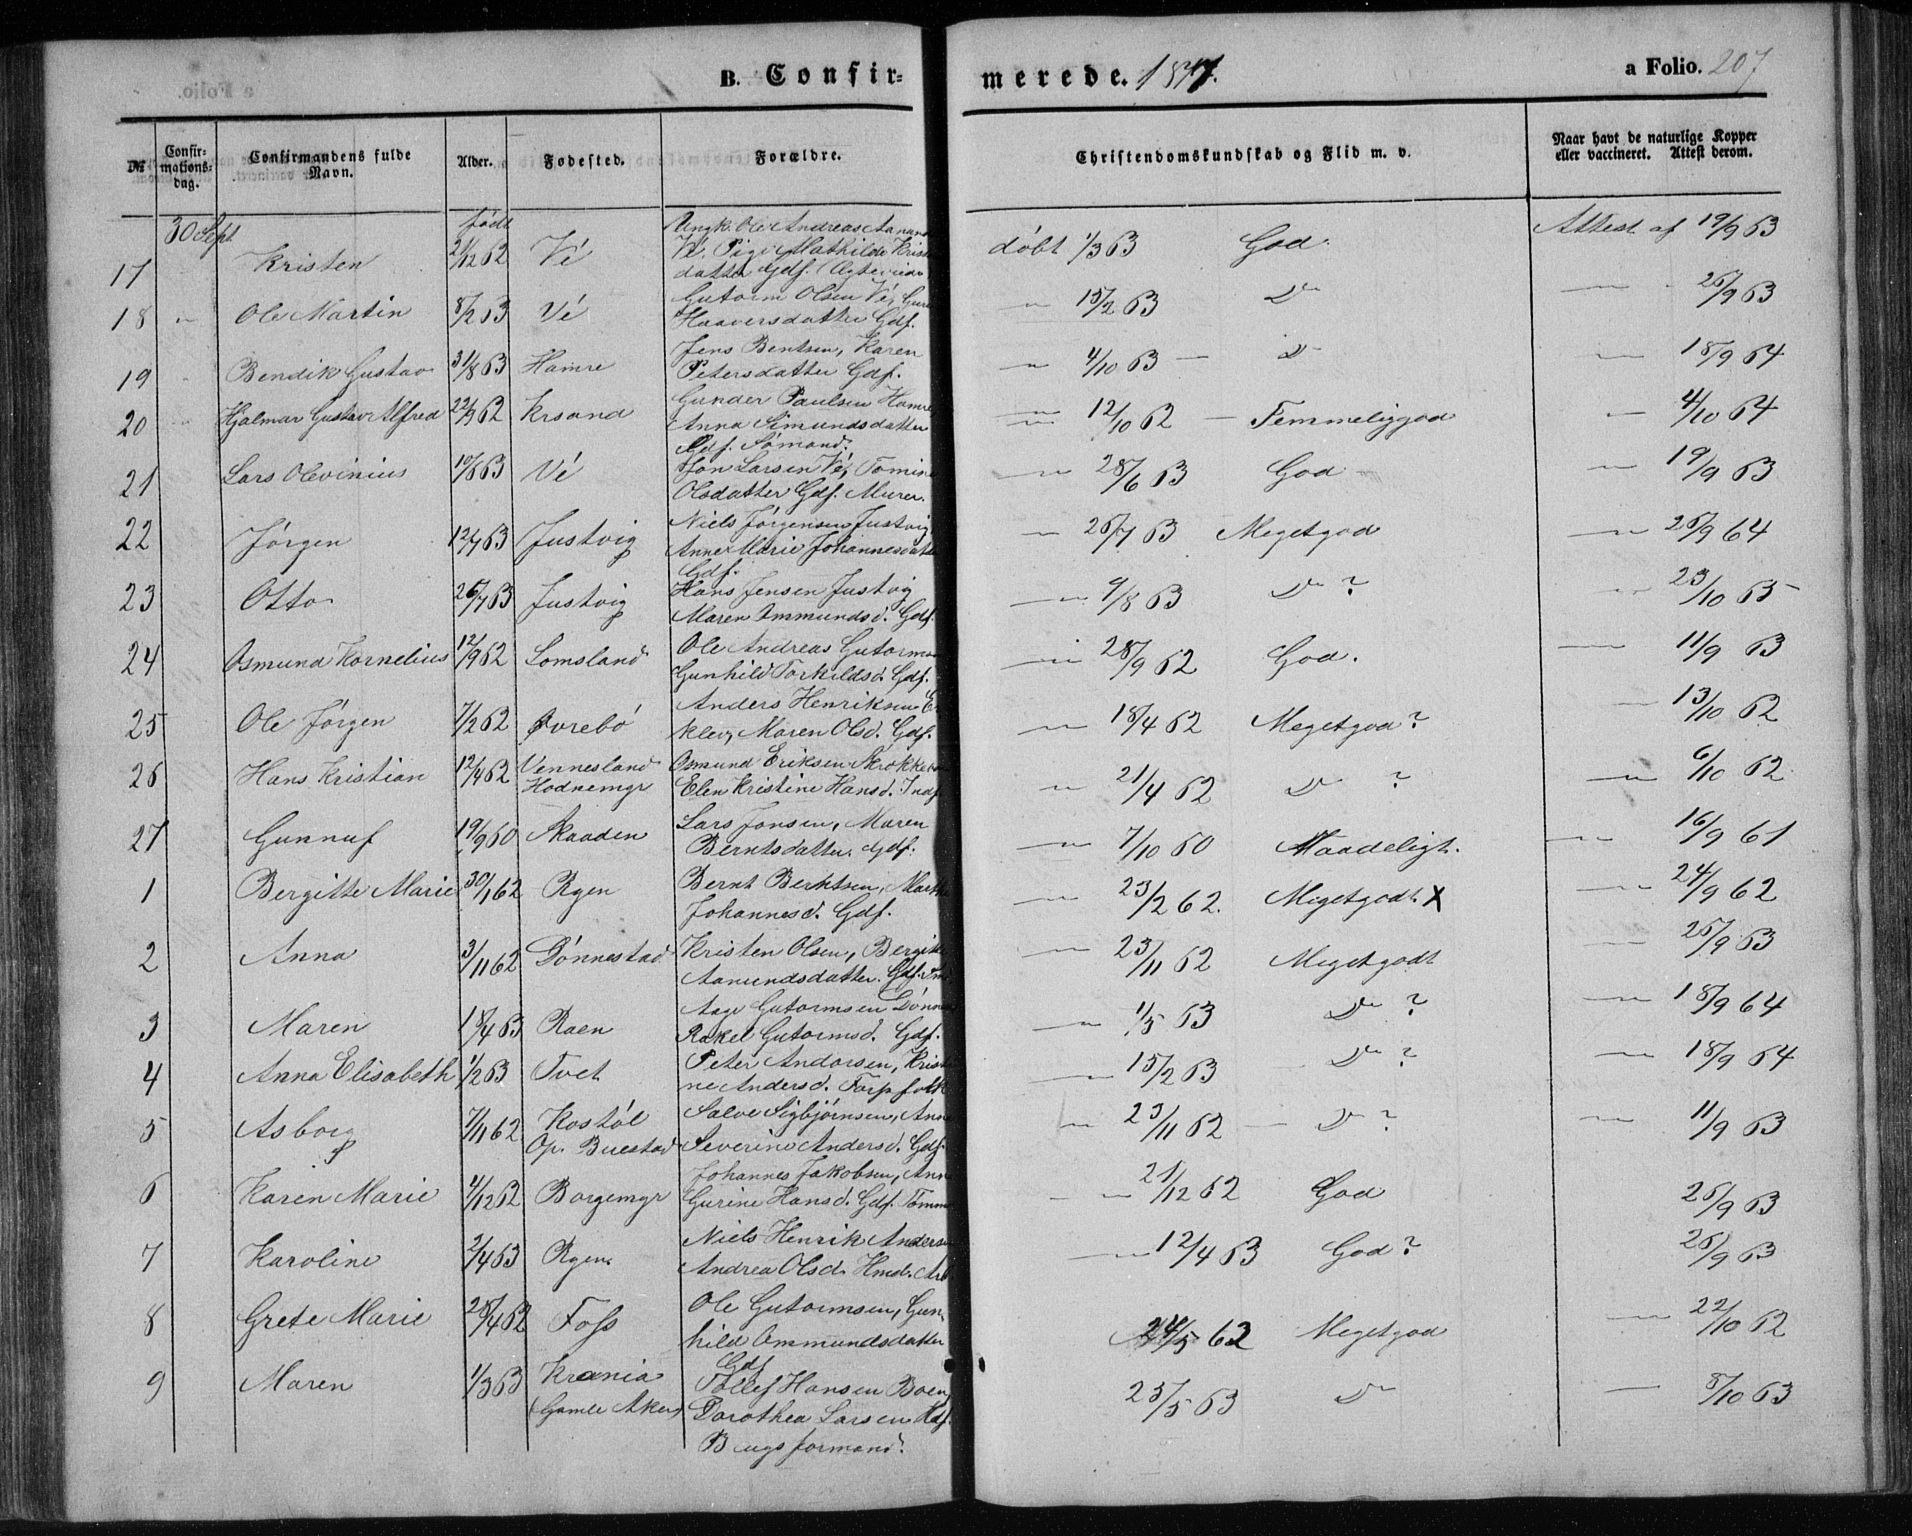 B. Confirmerede. 1877. a Folio. 207
№ | Confirmationsdag. | Confirmandens fulde Navn. | Alder. | Fødested. | Forældre. | Christendomskundskab og Flid m. v. | Naar havt de naturlige Kopper eller vaccineret. Attest derom.
30 Sept. født
17 Kristen 21/12 62 Vé Ungk. Ole Andreas Aanunds Vé, Pige Mathilde Krist datter Gdf. døbt 1/3 63 God Attest af 19/9 63
18 Ole Martin 8/2 63 Vé Gutorm Olsen Vé, Guro Haaversdatter Gdf. 15/2 63 Do 26/9 63
19 Bendik Gustav 31/8 63 Hamre Jens Bentsen, Karen Petersdatter Gdf. 4/10 63 Do 18/9 64
20 Hjalmar Gustav Alfred 22/9 62 Krsand Gunder Paulsen Hamre Anna Simundsdatter Gdf. Sømand. 12/10 62 Temmeliggod 4/10 64
21 Lars Olevinius 10/6 63 Vé Jon Larsen Vé, Tomine Olsdatter Gdf. Murer. 28/6 63 God 19/9 63
22 Jørgen 12/7 63 Justvig Niels Jørgensen Justvig Anne Marie Johannesdatt Gdf. 26/7 63 Megetgod 26/9 64
23 Otto 26/7 63 Justvig Hans Jensen Justvig Maren Ommundsd. Gdf. 9/8 63 Do ? 23/10 65
24 Osmund Kornelius 12/9 62 Lomsland Ole Andreas Gutorms Gunhild Torkildsd. Gdf. 28/9 62 God. 11/9 63
25 Ole Jørgen 7/2 62 Øvrebø Anders Henriksen E klev, Maren Olsd. Gdf. 18/4 62 Megetgod? 13/10 62
26 Hans Kristian 12/4 62 Vennesland Hodnemgr Osmund Eriksen Skrokke Elen Kristine Hansd. Indf 21/4 62 Do ? 6/10 62
27 Gunnuf 19/9 60 Skaaden Lars Jonsen, Maren Berntsdatter. Gdf. 7/10 60 Maadeligt. 16/9 61
1 Bergitte Marie 30/1 62 Ryen Bernt Berntsen, Marthe Johannesd. Gdf. 23/2 62. Megetgodt. X 24/9 62
2 Anna 3/11 62 Dønnestad Kristen Olsen, Bergitte Aanundsdatter. Gdf. 23/11 62 Megetgodt 26/9 63
3 Maren 18/4 63 Raen Aage Gutormsen Dønne Rakel Gutormsd. Gdf. 1/5 63 Do ? 18/9 64
4 Anna Elisabeth 1/2 63 Tvet Peter Andersen, Kristi ne Andersd. Torp folk 15/2 63 Do ? 18/9 64
5 Asborg 7/11 62 Kostøl Op. Buestad Salve Sigbjørnsen, Anne Severine Andersd. Gdf. 23/11 62 Do ? 11/9 63
6 Karen Marie 4/12 62 Borgemgr Johannes Jakobsen, Anne Gurine Hansd. Gdf. Tømm 21/12 62 God 26/9 63
7 Karoline 2/4 63 Ryen Niels Henrik Anders Andrea Olsd. Hmd. Arb 12/4 63 God? 26/9 63
8 Grete Marie 28/4 62 Foss Ole Gutormsen, Gunhild Ommundsdatter Gdf 24/5 62 Megetgod 22/10 62
9 Maren 1/3 63 Krania (Gamle Aker) Tellef Hansen Boen, Dorothea Larsen Hdf. Bugsformand. 25/5 63 Do 8/10 63